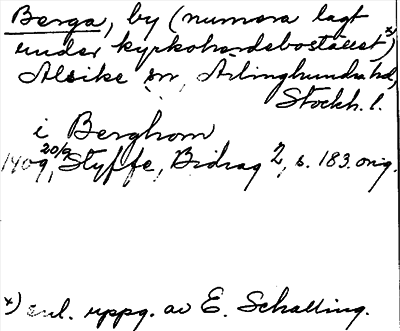 Berga, by (numera lagt
under kyrkoherdebostället *)
Alsike sn, Ärlinghundra hd,
Stockh. l.
i Berghom
1409 20/9, Styffe, Bidrag 2, s. 183. orig.
*) enl. uppg. av E. Schalling.